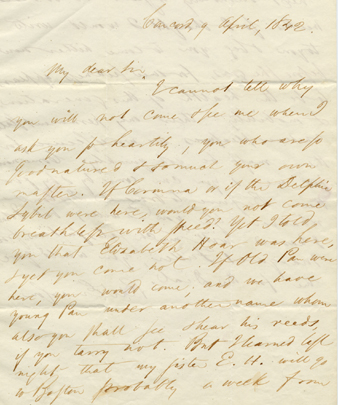 Concord, 9 April, 1842.
My dear Sir,
I cannot tell why
you will not come & see me when I
ask you so heartily, you who are so
goodnatured & so much your own
master. If Corinna or if the Delphic
Sybil were here, would you not come
breathless with speed? Yet I told
you that Elizabeth Hoar was here,
& yet you come not. If Old Pan were
here, you would come; and we have
young Pan under another name whom
also you shall see & hear his reeds,
if you tarry not. But I learned last
night that my sister E. H. will go
to Boston probably a week from